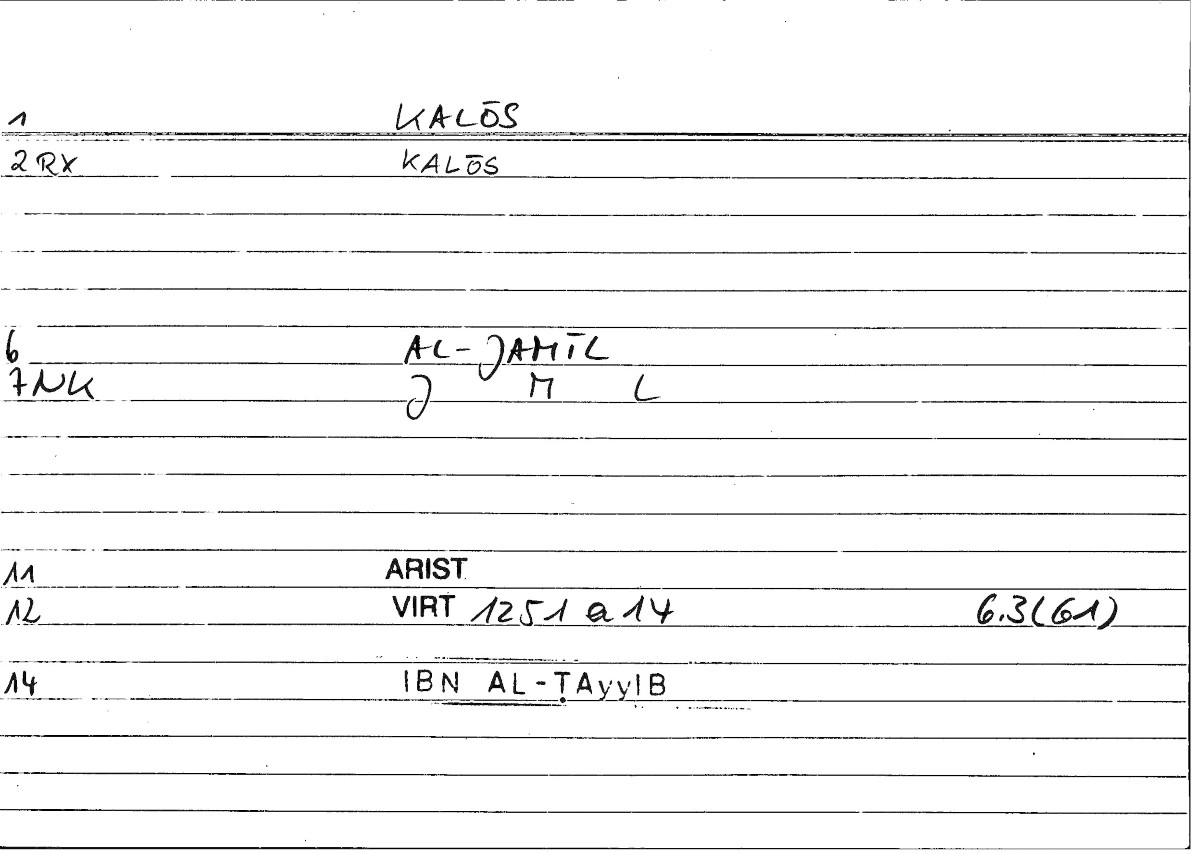 1 KALŌS
2 RX KALŌS
6 AL-JAMĪL
7 NK J M L
11 ARIST
12 VIRT 1251 a 14 6.3(61)
14 IBN AL-ṬAyyIB